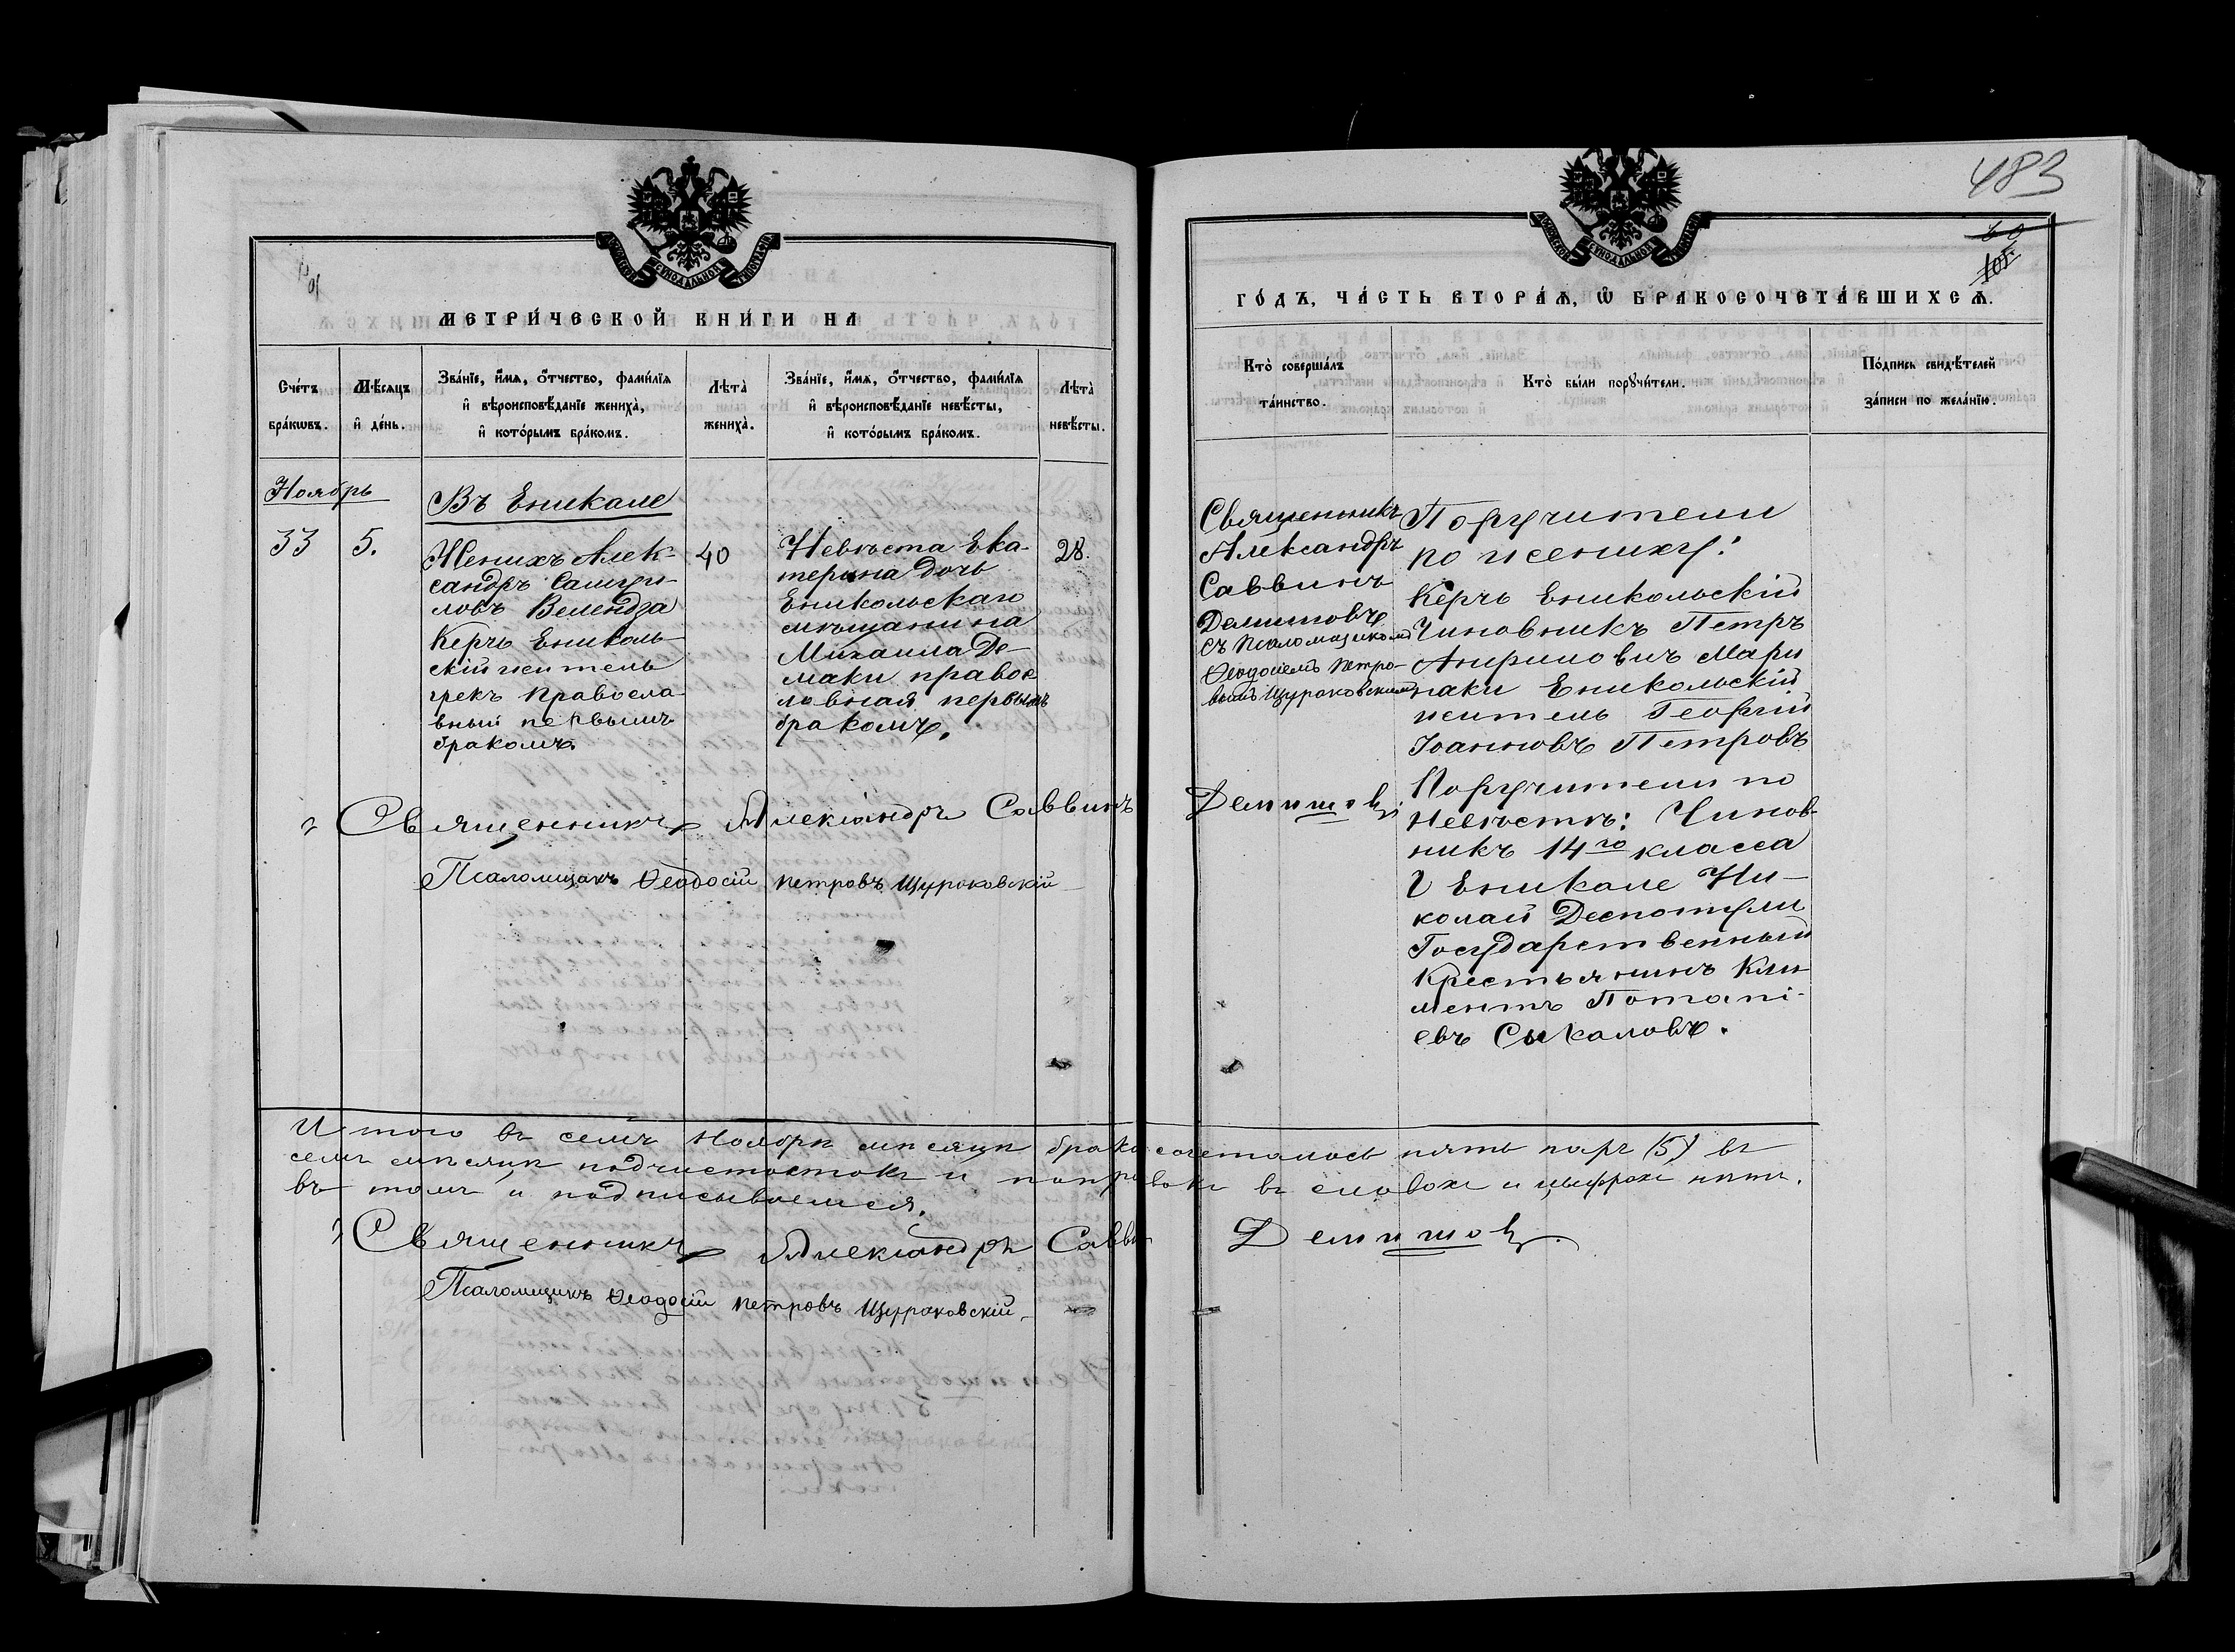 483
60
101
МЕТРИ́ЧЕСКОЙ КНИ́ГИ НА
ГО́ДЪ, ЧА́СТЬ ВТОРА́Я, Ѿ БРАКОСОЧЕТА́ВШИХСЯ.
Сче́тъ бра́кωвъ.
Мѣ́сяцъ и҆ де́нь.
Зва́нїе, и҆́мѧ, ѻ҆́тчество, фами́лїѧ
и҆ вѣроисповѣ́данїе жениха̀,
и҆ кото́рымъ бра́комъ.
Лѣта̀ жениха̀.
Зва́нїе, и҆́мѧ, ѻ҆́тчество, фами́лїѧ
и҆ вѣроисповѣ́данїе невѣ́сты,
и҆ кото́рымъ бра́комъ.
Лѣта̀ невѣ́сты.
Кто̀ соверша́лъ
та́инство.
Кто̀ бы́ли порꙋчи́тели.
По́дпись свидѣ́телей
за́писи по жела́нїю.
Ноябрь
Въ Еникале
33
5.
Женихъ Алек-
сандръ
ловъ Велендза
Керчь Ениколь-
скій житель
грекъ Правосла-
вный первымъ
бракомъ.
40
Невѣста Ека-
терина дочь
Еникольскаго
мѣщанина
Михаила Де-
маки правос
лавная первымъ
бракомъ.
28.
Священникъ
Александръ
Саввинъ
Демишовъ
съ Псаломщикомъ
Ѳеодосіемъ Петро-
вымъ Щураковскимъ
Поручители
по жениху:
Керчь Еникольскій
Чиновникъ Петръ
Мари
наки Еникольскій
житель Георгій
Іоанновъ Петровъ
Поручители по
Невѣстѣ: Чинов-
никъ 14го класса
Еникале Ни-
колай Деспотули
Государственный
Крестьянинъ Кли
ментъ Потапі-
евъ Сыкаловъ.
Священникъ Александръ Саввинъ Демишовъ
Псаломщикъ Ѳеодосій Петровъ Щураковскій
Итого въ семъ Ноябрѣ мѣсяцѣ бракосочеталось пять паръ (5) въ
семъ мѣсяцѣ подчистокъ и поправокъ въ словахъ и цыфрахъ нѣтъ.
въ томъ и подписываемся.
Священникъ Александръ Савви Демишовъ
Псаломщикъ Ѳеодосій Петровъ Щураковскій